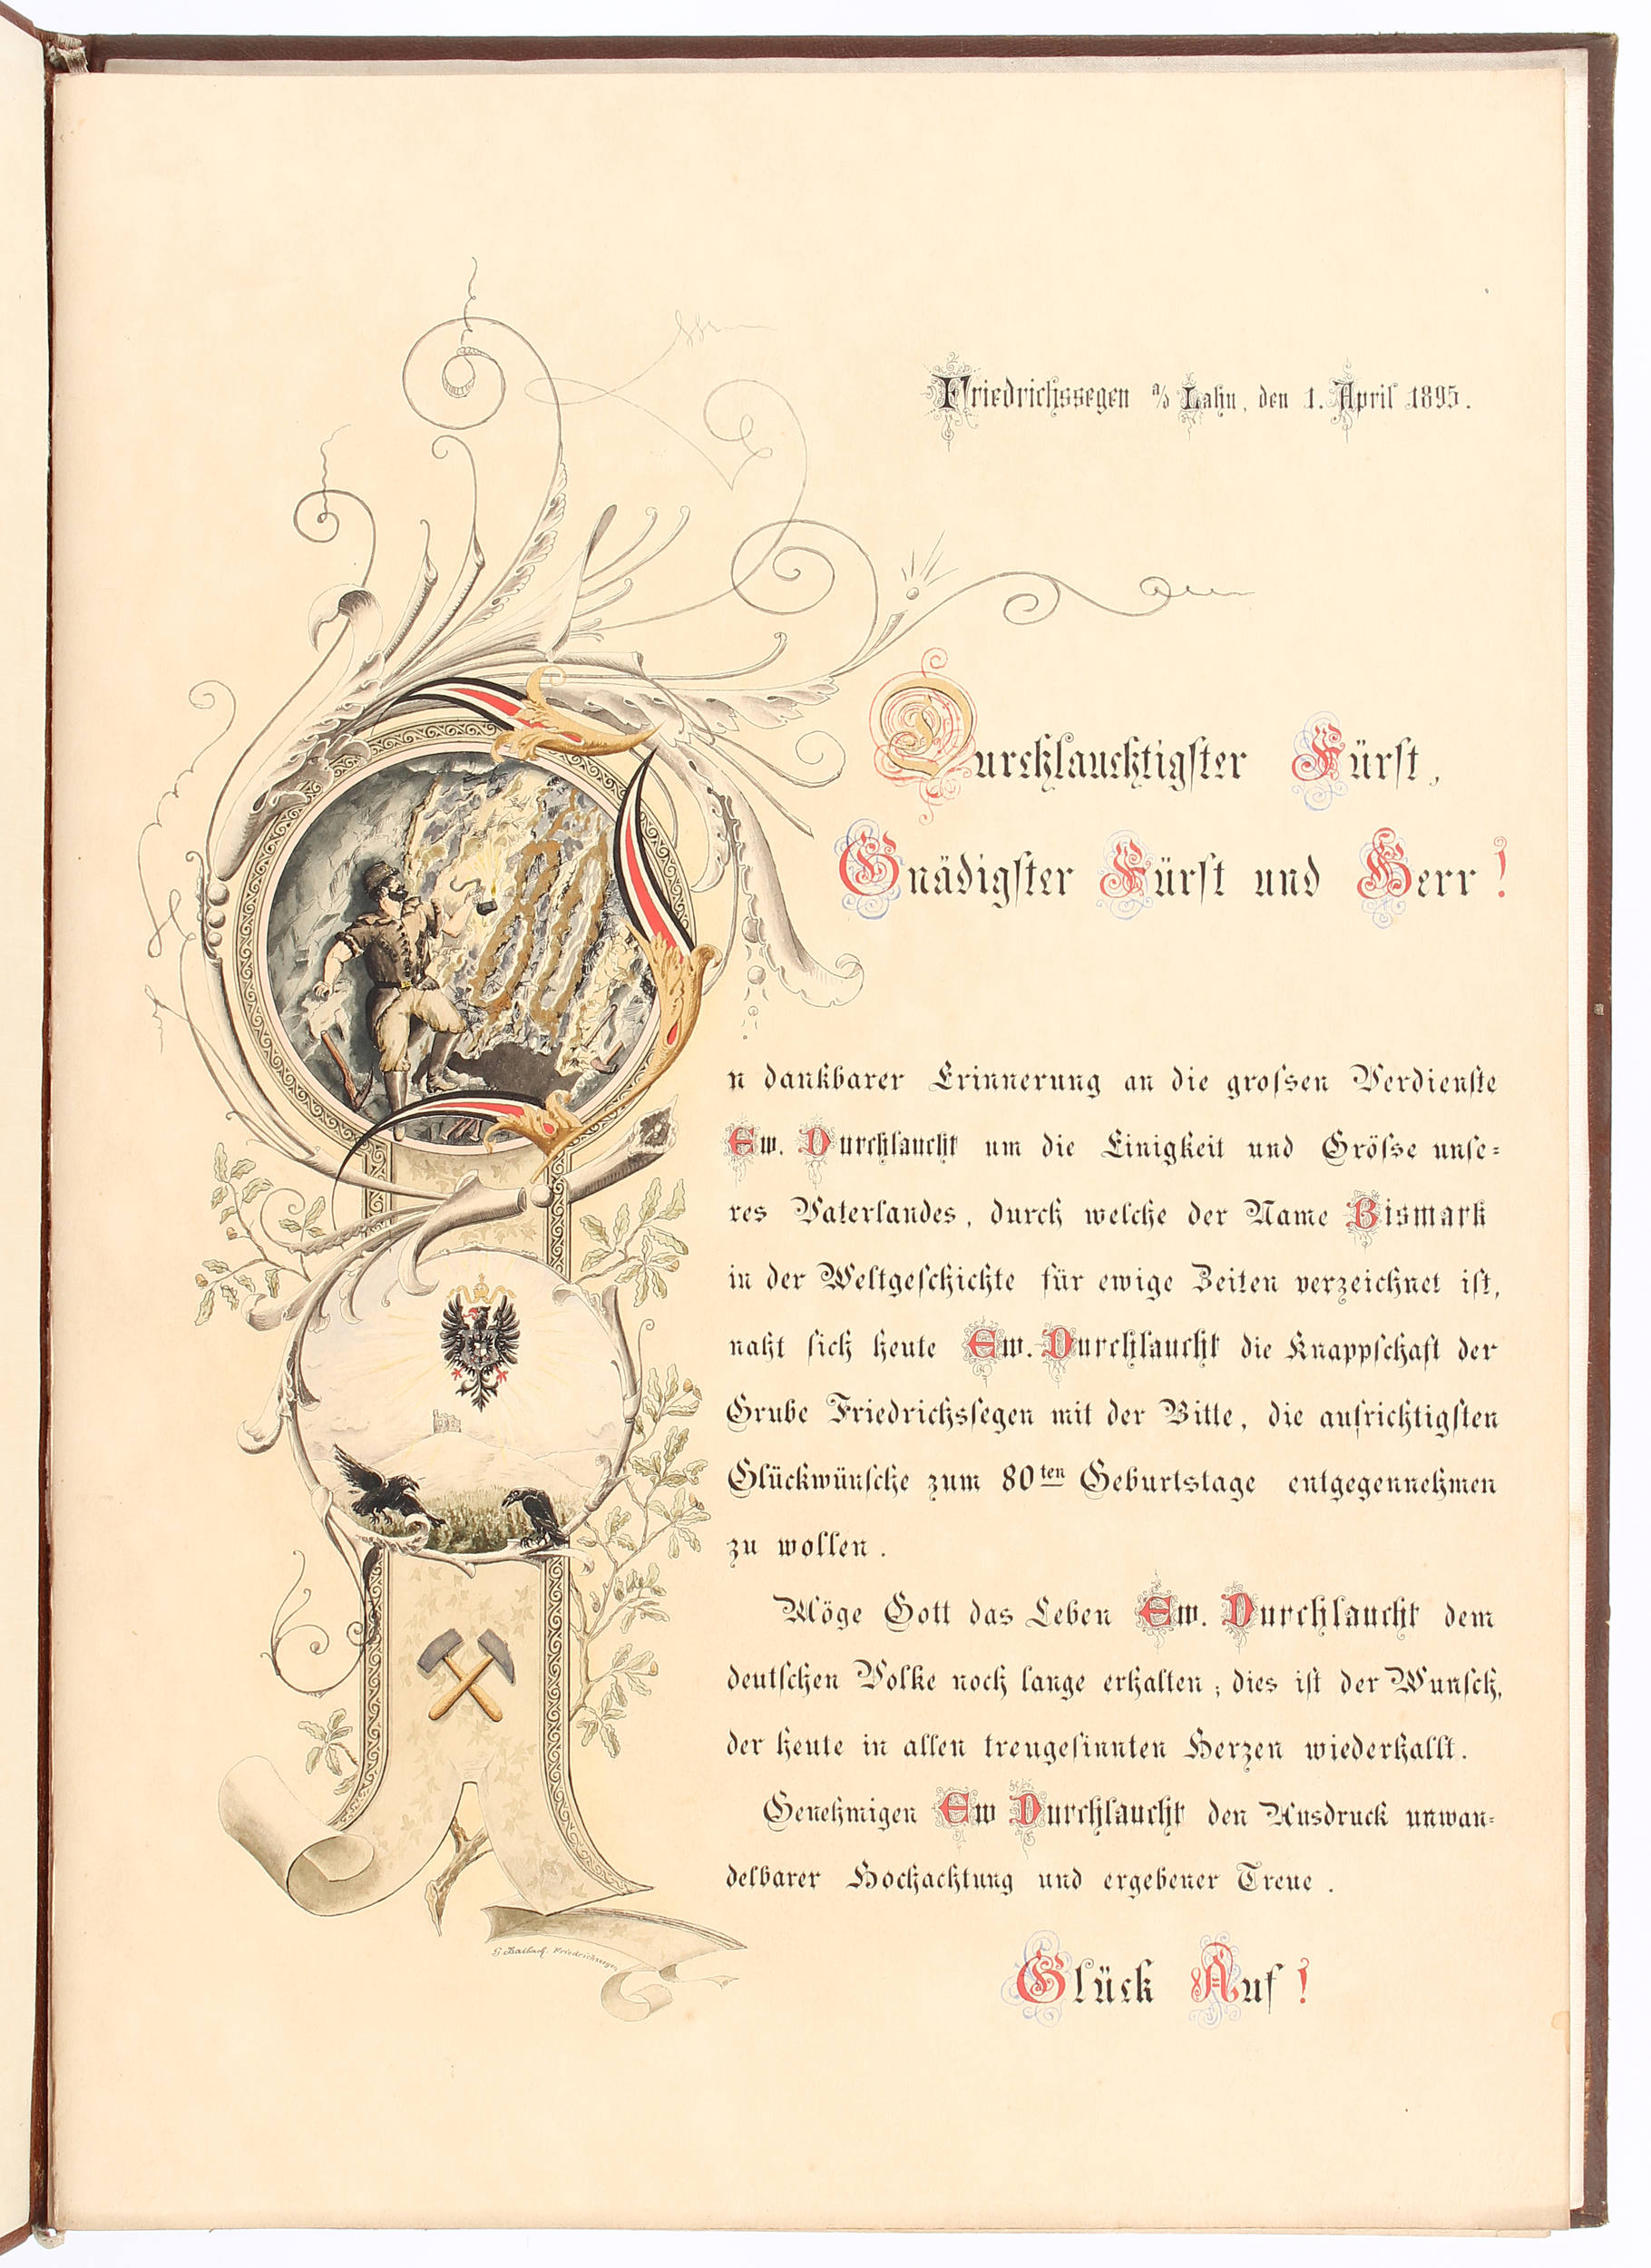 Friedrichssegen a/d Lahn, den 1. April 1895.
Durchlauchtigster Fürst,
Gnädigster Fürst und Herr!
n dankbarer Erinnerung an die grossen Verdienste
Ew. Durchlaucht um die Einigkeit und Grösse unse=
res Vaterlandes, durch welche der Name Bismark
in der Weltgeschichte für ewige Zeiten verzeichnet ist,
naht sich heute Ew. Durchlaucht die Knappschaft der
Grube Friedrichssegen mit der Bitte, die aufrichtigsten
Glückwünsche zum 80ten Geburtstage entgegennehmen
zu wollen.
Möge Gott das Leben Ew. Durchlaucht dem
deutschen Volke noch lange erhalten; dies ist der Wunsch,
der heute in allen treugesinnten Herzen wiederhallt.
Genehmigen Ew Durchlaucht den Ausdruck unwan=
delbarer Hochachtung und ergebener Treue.
Glück Auf!
80
Friedrichssegen